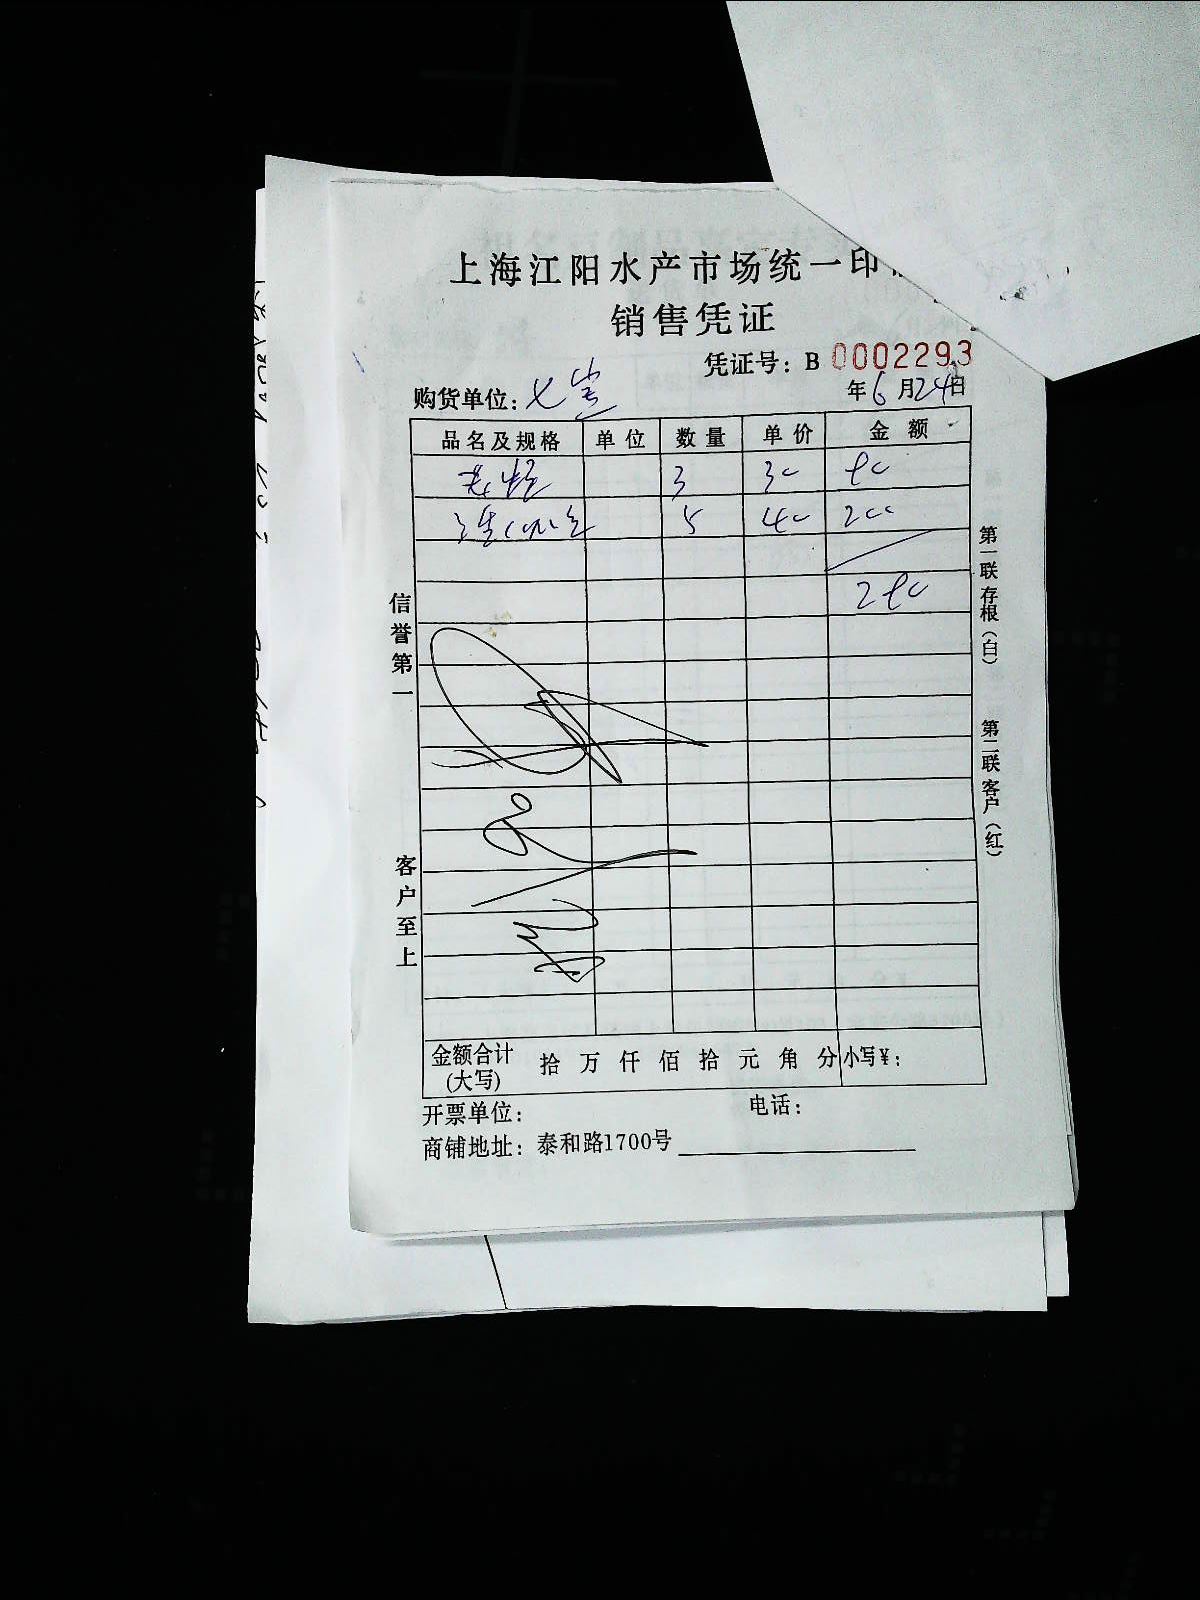 上海江阳水产市场统一印
销售凭证
凭证号：B 0002293
购货单位：七宝 年6月24日
品名及规格 单位 数量 单价 金额
3 30 90
5 40 200
290
信誉第一
客户至上
第一联 存根（白）
第二联 客户（红）
金额合计(大写) 拾 万 仟 佰 拾 元 角 分 小写¥：
开票单位： 电话：
商铺地址：泰和路1700号